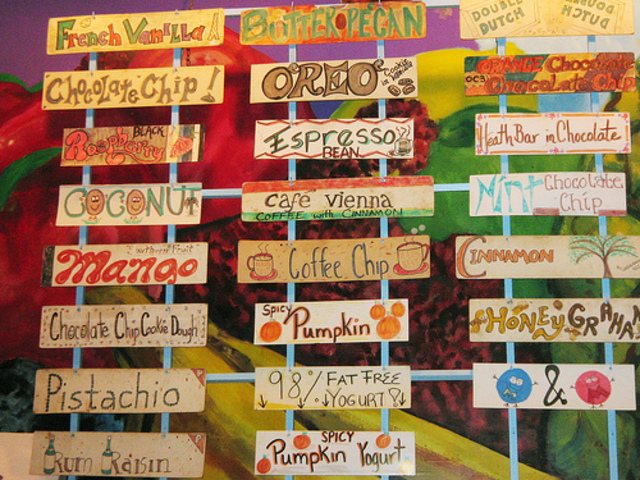 French Vanilla
Chocolate Chip!
BLACK
Raspberry
COCONUT
Mango
Chocolate Chip Cookie Dough
Pistachio
Rum Raisin
BUTTER PECAN
OREO
Cookie
in Vanilla
Espresso
BEAN
café vienna
COFFEE with CINNAMON
Coffee Chip
SPICY
Pumpkin
98% FAT FREE
YOGURT
SPICY
Pumpkin Yogurt
DOUBLE
DUTCH
DOUBLE
DUTCH
ORANGE Chocolate
Chocolate Chip
Heath Bar in Chocolate
Mint Chocolate
Chip
CINNAMON
HONEY GRAHAM
&